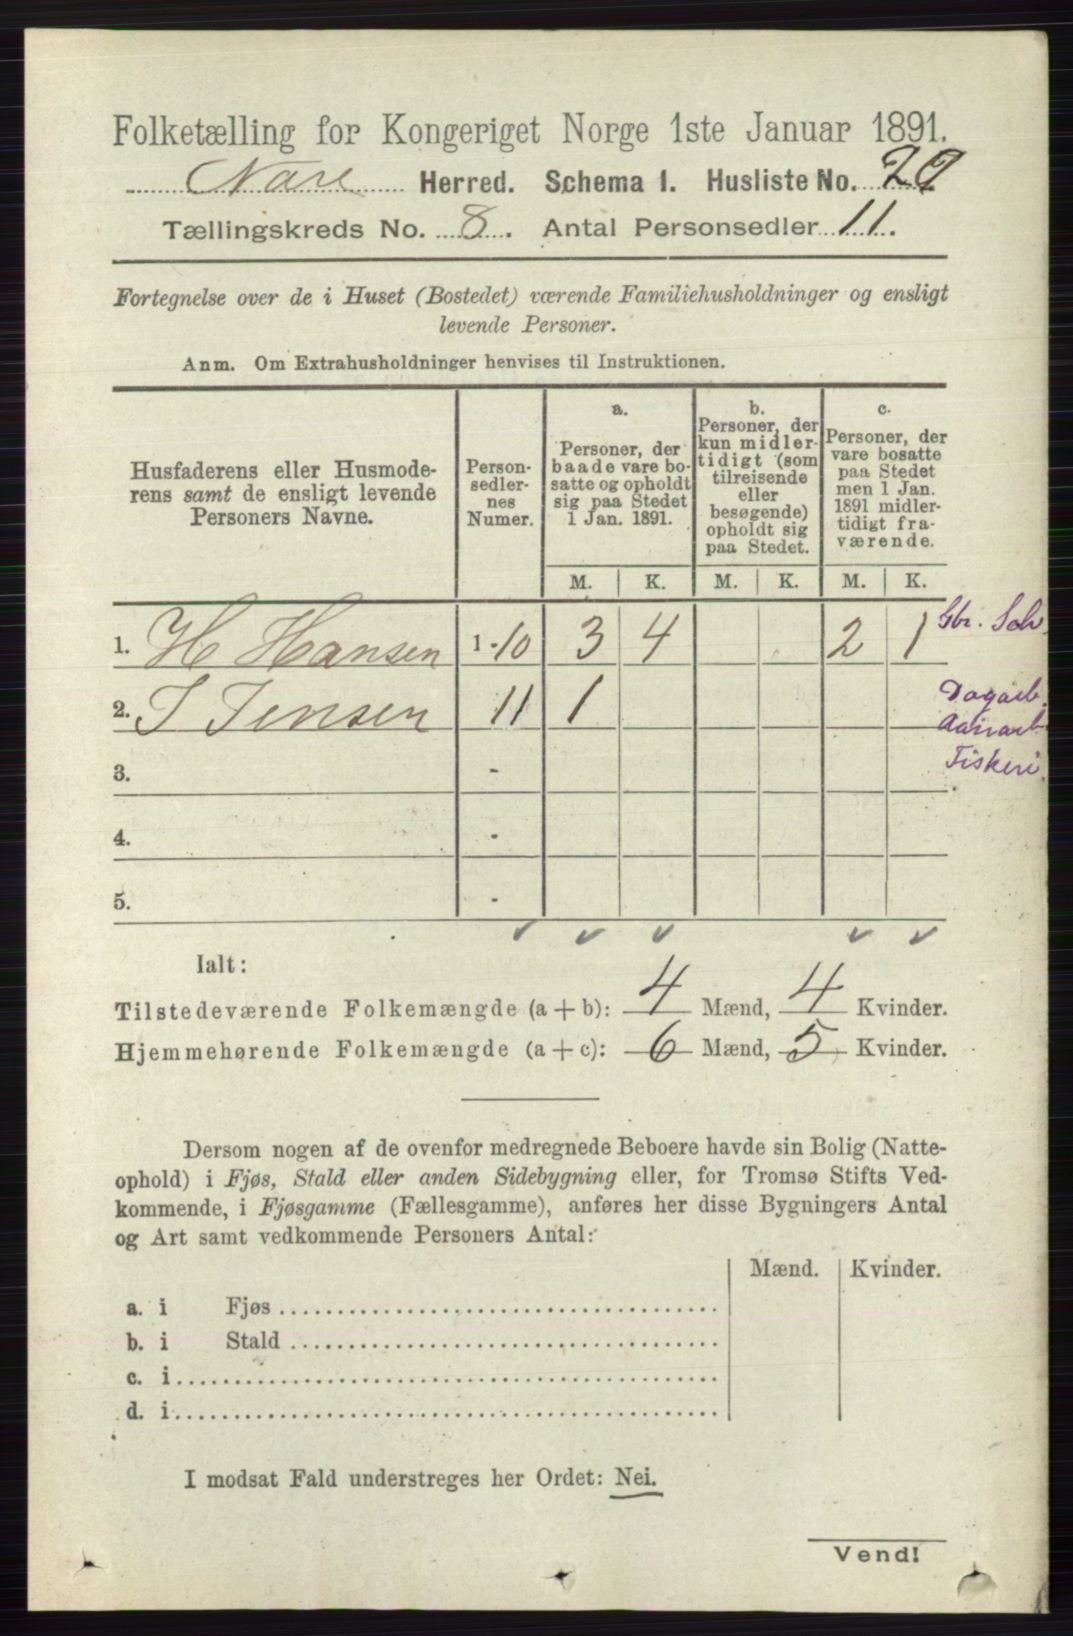 Folketælling for Kongeriget Norge 1ste Januar 1891.
Herred. Schema 1. Husliste No.
Tællingskreds No. 8. Antal Personsedler 11.
Fortegnelse over de i Huset (Bostedet) værende Familiehusholdninger og ensligt
levende Personer.
Anm. Om Extrahusholdninger henvises til Instruktionen.
Husfaderens eller Husmode-
rens samt de ensligt levende
Personers Navne.
Person-
sedler-
nes
Numer.
a.
Personer, der
baade vare bo-
satte og opholdt
sig paa Stedet
1 Jan. 1891.
b.
Personer, der
kun midler-
tidigt (som
tilreisende
eller
besøgende)
opholdt sig
paa Stedet.
c.
Personer, der
vare bosatte
paa Stedet
men 1 Jan.
1891 midler-
tidigt fra-
værende.
M. K. M. K. M. K.
1. H Hansen 1-10 3 4 2 1 Gbr. Selv
2. J Jensen 11 1 Dagarb.
Fiskeri
3. -
4. -
5. -
Ialt:
Tilstedeværende Folkemængde (a + b): 4 Mænd, 4 Kvinder.
Hjemmehørende Folkemængde (a + c): 6 Mænd, 5 Kvinder.
Dersom nogen af de ovenfor medregnede Beboere havde sin Bolig (Natte-
ophold) i Fjøs, Stald eller anden Sidebygning eller, for Tromsø Stifts Ved-
kommende, i Fjøsgamme (Fællesgamme), anføres her disse Bygningers Antal
og Art samt vedkommende Personers Antal:
Mænd. Kvinder.
a. i Fjøs
b. i Stald
c. i
d. i
I modsat Fald understreges her Ordet: Nei.
Vend!